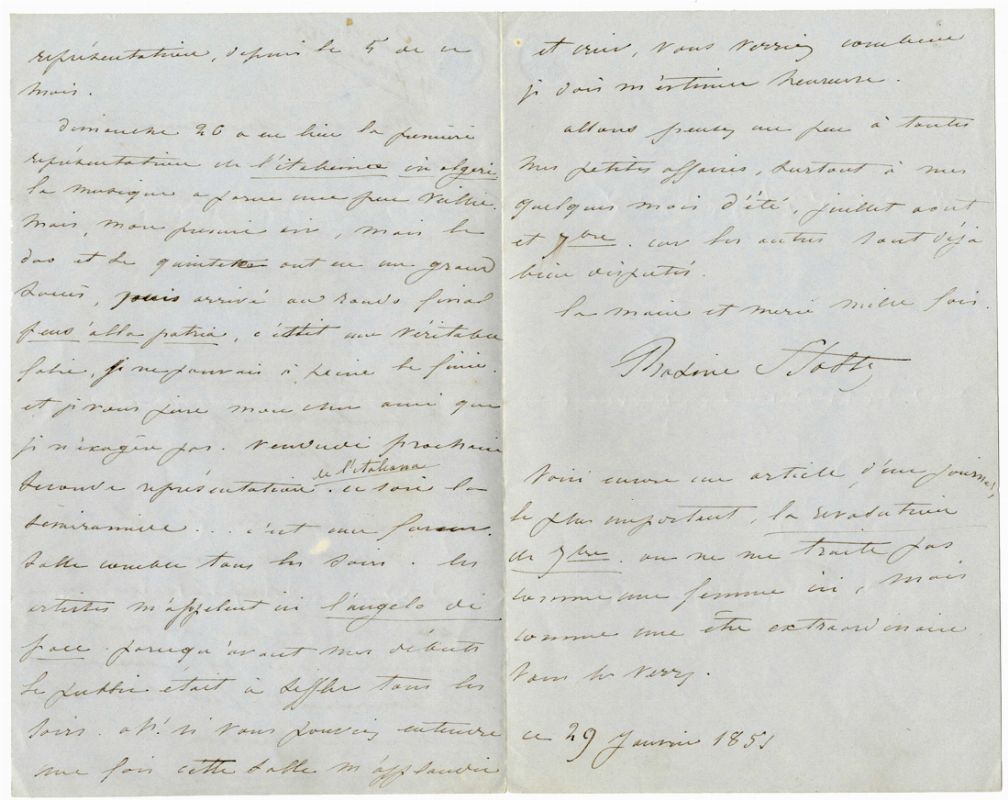 représentation, depuis le 5 de ce
mois.
dimanche 26 a eu lieu la première
représentation de l'italienne in algeri,
la musique a parue une peu vieille.
mais, mon premier air, mais le
duo et le quintette ont eu un grand
succès, puis arrivé au rondo final
pens'alla patria, c'était une véritable
folie, je ne pouvais à peine le finir.
et je vous jure mon cher ami que
je n'exagère pas. vendredi prochain
seconde représentation de l'italiana. ce soir la
Sémiramide... c'est une fureur.
salle comble tous les soirs. les
artistes m'appelent ici l'angelo di
pace. parcequ'avant mes débuts
le public était à siffler tous les
soirs. ah! si vous pouviez entendre
une fois cette salle m'applaudir
et crier, vous verriez combien
je dois m'estimer heureuse.
allons pensez un peu à toutes
mes petites affaires, surtout à mes
quelques mois d'été, juillet aout
et 7bre. car les autres sont déjà
bien disputés.
la main et merci mille fois.
Rosine Stoltz
Voici encore un article, d'un journal,
le plus important, la revolution
de 7bre. on ne me traite pas
comme une femme ici, mais
comme une être extraordinaire
vous le verrez.
ce 29 Janvier 1851